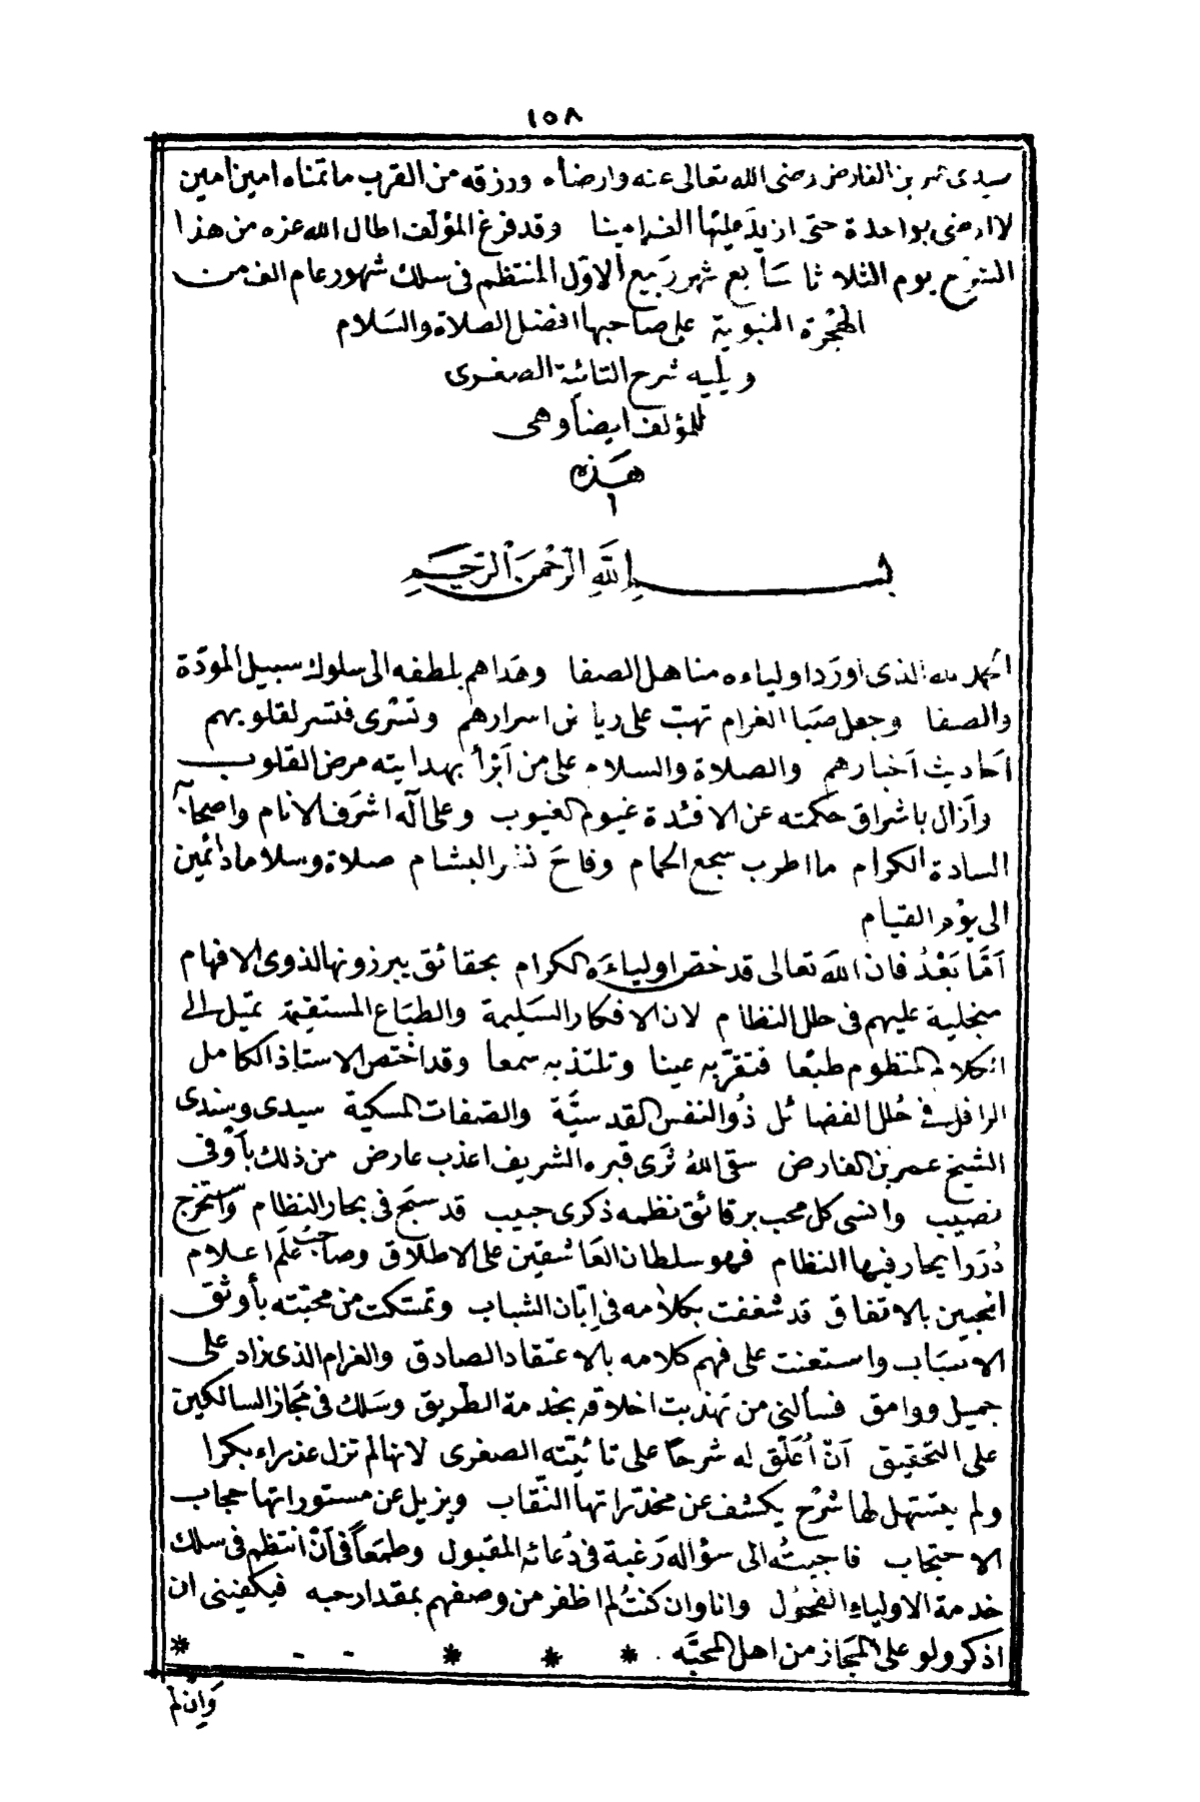 ١٥٨
سيدى عمر بن الفارض رضى الله تعالى عنه وارضاه ورزقه من القرب ما تمناه امين امين
لا ارضى بواحدة حتى ازيد عليها الف امينا وقد فرغ المؤلف اطال الله عزه من هذا
الشرح يوم الثلاثا سَابع شهر رَبيع الاوّل المنتظم فى سلك شهور عام الف من
الهجْرة النبوية على صاحبها افضل الصلاة والسَلام
ويليه شرح التائية الصغرى
للمؤلف ايضاً وهى
هَذه
١
بسم اللَّهِ الرَّحْمنِ الرَّحيمِ
الحمد لله الذى اورَد اولياءه مناهل الصفا وهَداهم بلطفه الى سلوك سبيل المودّة
والصفا وجعل صَبا الغرام تهبّ على رياض اسرارهم وتسْرى فتسر لقلوبهم
اَحاديث اَخبارهم والصلاة والسلام على من اَبْرأ بهدايته مرض القلوب
واَزال باشراق حكمته عن الافئدة غيوم الغيوب وعلى آله اشرَف الانام واصحابه
السادة الكرام ما اطرب سجع الحمام وفاحَ نشر البشام صلاة وسلاما دائمين
الى يوْم القيام
اَمَّا بَعْدُ فان اللهَ تعالى قد خصّ اولياءَه الكرام بحقائق يبرزونها لذوى الافهام
منجلية عليهم فى حلل النظام لان الافكار السَليمة والطبَاع المستقيمة تميّل الى
الكلام المنظوم طبْعًا فتقرّ به عينا وتلتذ به سمعا وقد اختص الاستاذ الكامل
الرافل فى حُلل الفضائل ذُو النفس القدسيَّة والصّفات المسكية سيدى وسندى
الشيخ عمر بن الفارض سقى اللهُ ثرَى قبره الشريف اعذب عارض من ذلك باَوْفى
نصيب وانسى كل محب برقائق نظمه ذكرى حبيب قد سبَح فى بحار النظام واستخرج
دُرَرا يحار فيها النظام فهو سلطان العَاشقين على الاطلاق وصاحب علَم اعلام
المحبين بالاتفاق قد شغفت بكلامه فى اِبّان الشباب وتمسّكت من محبّته بأوثق
الاسبَاب واستعنت على فهم كلامه بالاعتقاد الصادق والغرام الذى زاد على
جميل ووامق فسألنى من تهذبت اخلاقه بخدمة الطّريق وسَلك فى مَجاز السالكين
على التحقيق اَنْ اُعَلّق له شرحًا على تائيّته الصغرى لانها لم تزل عذراء بكرا
ولم يستهل لها شرْح يكشف عن مخدّراتها النّقاب ويزيل عن مستوراتها حجاب
الاحتجاب فاجبتُه الى سؤاله رَغبة فى دُعائه المقبول وطمَعاً فى اَنْ انتظم فى سلك
خدمة الاولياء الفحُول وانا وان كنتُ لم اظفر من وصفهم بمقدار حبه فيكفينى ان
اذكر ولو على المجَاز من اهل المحبَّه * * * *
وَاِن لم